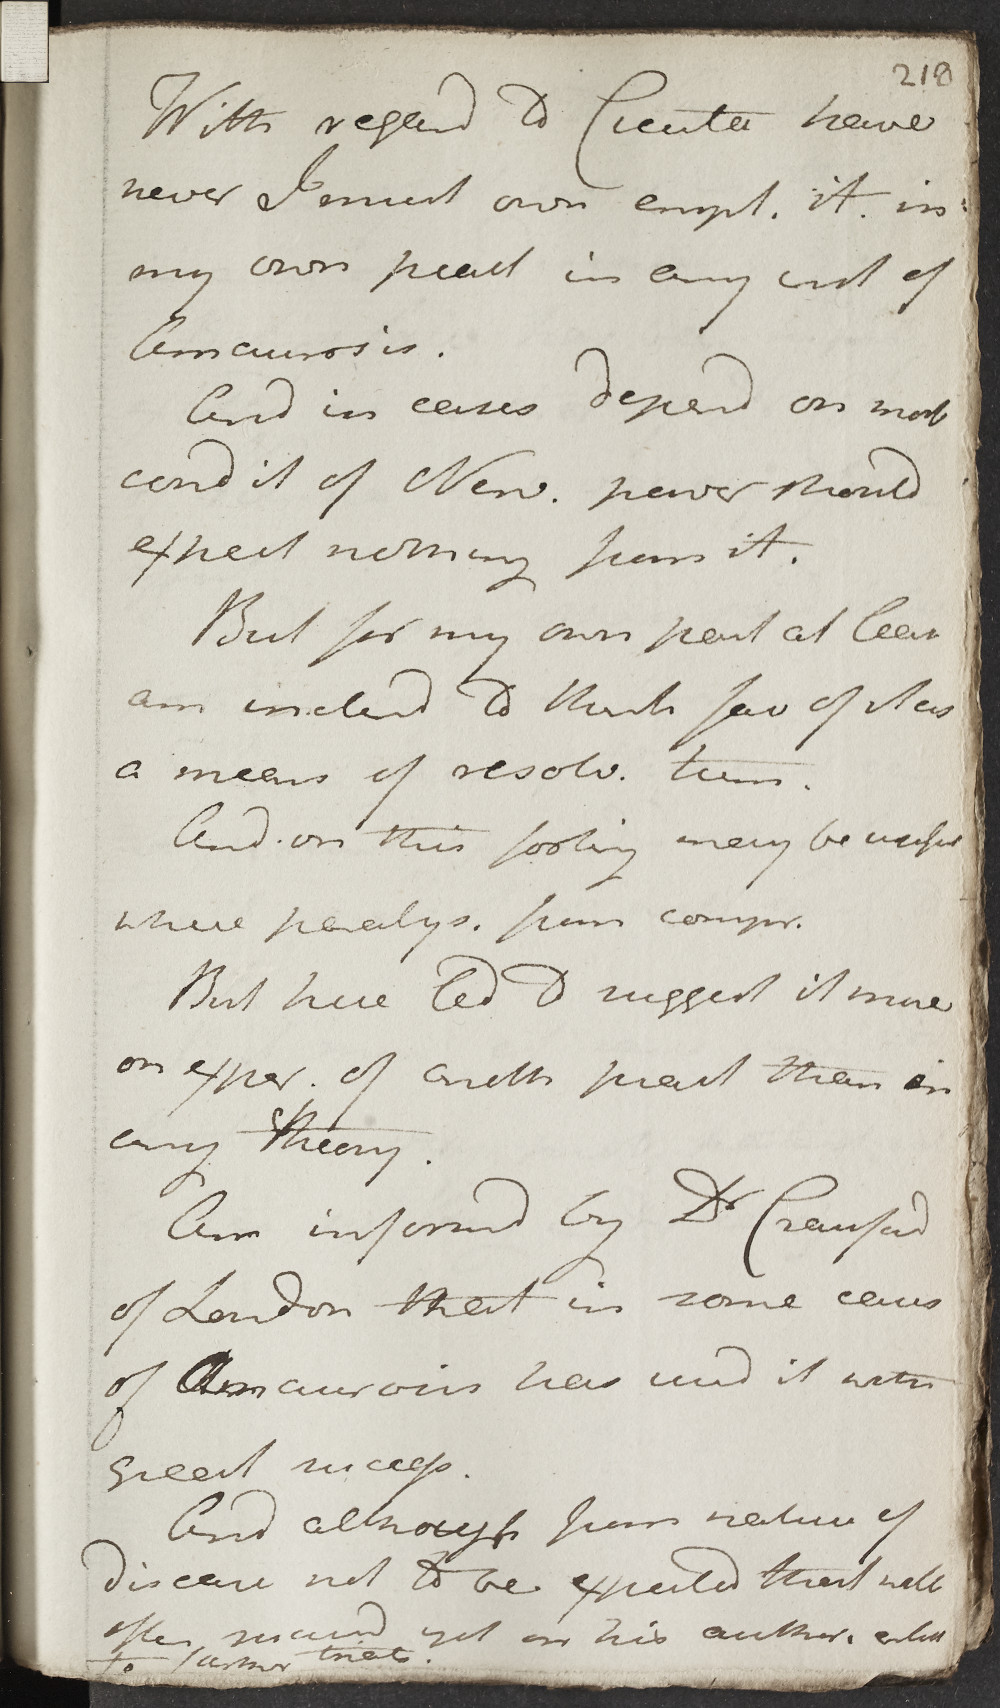 218
With regard to Cicuta have
never I must own empl. it. in
my own pract in any inst of
Amaurosis.
And in cases depend on morb
condit of Nerv. power should
expect nothing from it.
But for my own part at least
am inclind to think fav of it as
a means of resolv. tum.
And on this footing may be usefu
where paralys. from compr.
But here led to suggest it more
on exper. of anoth pract than on
any Theory.
Am informd by Dr Craufurd
of London that in some cases
of Amaurosis has usd it with
great success.
And although from nature of
disease not to be expected that will
often succeed yet on his author. entitl
to farther trials.